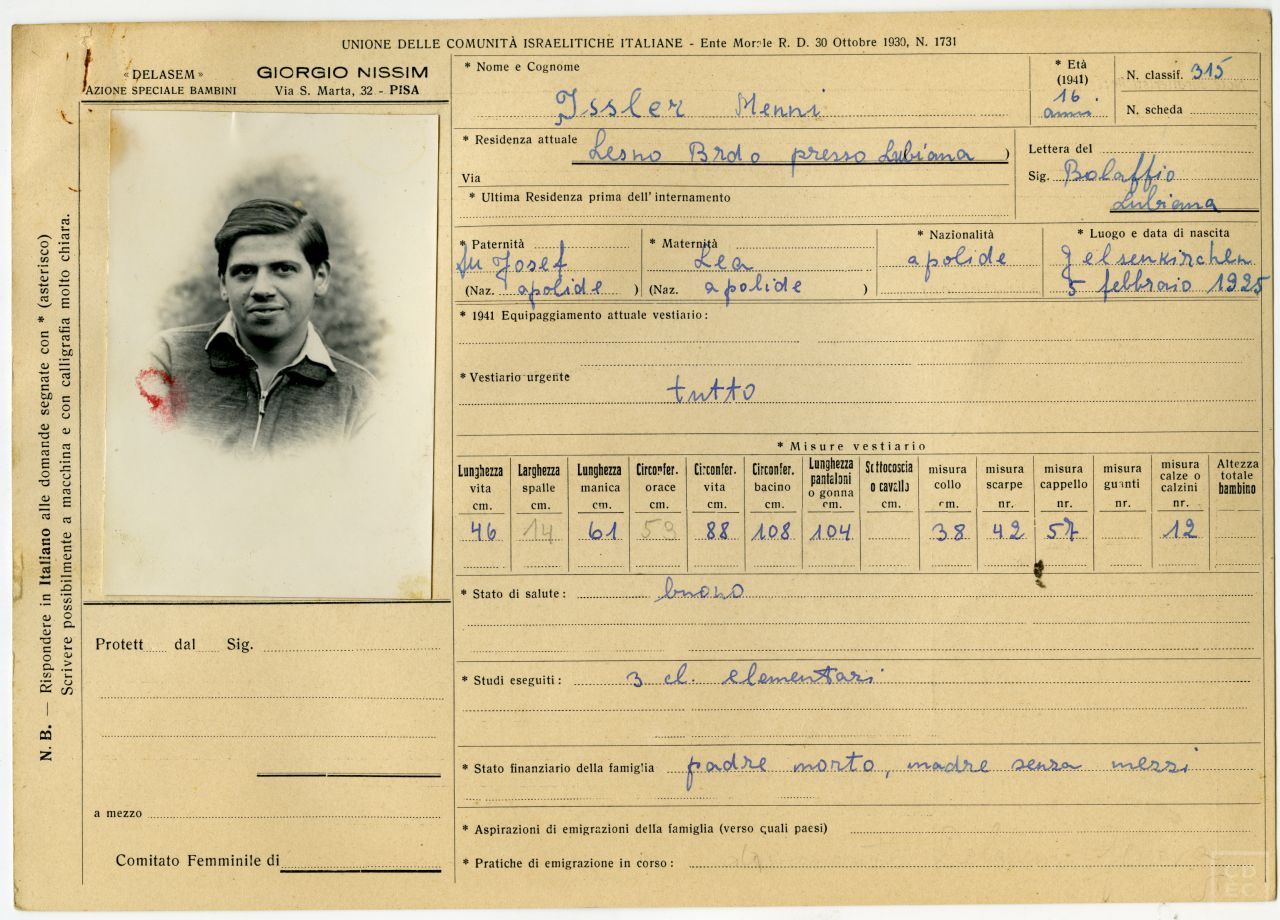 UNIONE DELLE COMUNITÀ ISRAELITICHE ITALIANE - Ente Morale R. D. 30 Ottobre 1930, N. 1731
« DELASEM »
AZIONE SPECIALE BAMBINI
GIORGIO NISSIM
Via S. Marta, 32 - PISA
N. B. — Rispondere in Italiano alle domande segnate con * (asterisco)
Scrivere possibilmente a macchina e con calligrafia molto chiara.
Protett dal Sig.
a mezzo
Comitato Femminile di
* Nome e Cognome
Issler Menni
* Età
(1941)
16
anni
N. classif. 315
N. scheda
* Residenza attuale Lesno Brdo presso Lubiana )
Via
* Ultima Residenza prima dell' internamento
Lettera del
Sig. Bolaffio
Lubiana
* Paternità
fu Josef
(Naz. apolide )
* Maternità
Lea
(Naz. apolide )
* Nazionalità
apolide
* Luogo e data di nascita
Gelsenkirchen
5 febbraio 1925
* 1941 Equipaggiamento attuale vestiario :
* Vestiario urgente
tutto
* Misure vestiario
Lunghezza vita cm. 46
Larghezza spalle cm. 14
Lunghezza manica cm. 61
Circonfer. orace cm. 59
Circonfer. vita cm. 88
Circonfer. bacino cm. 108
Lunghezza pantaloni o gonna cm. 104
Sottocoscia o cavallo cm.
misura collo cm. 38
misura scarpe nr. 42
misura cappello nr. 57
misura guanti nr.
misura calze o calzini nr. 12
Altezza totale bambino
* Stato di salute : buono
* Studi eseguiti : 3 cl. elementari
* Stato finanziario della famiglia padre morto, madre senza mezzi
* Aspirazioni di emigrazioni della famiglia (verso quali paesi)
* Pratiche di emigrazione in corso :
CD
EC